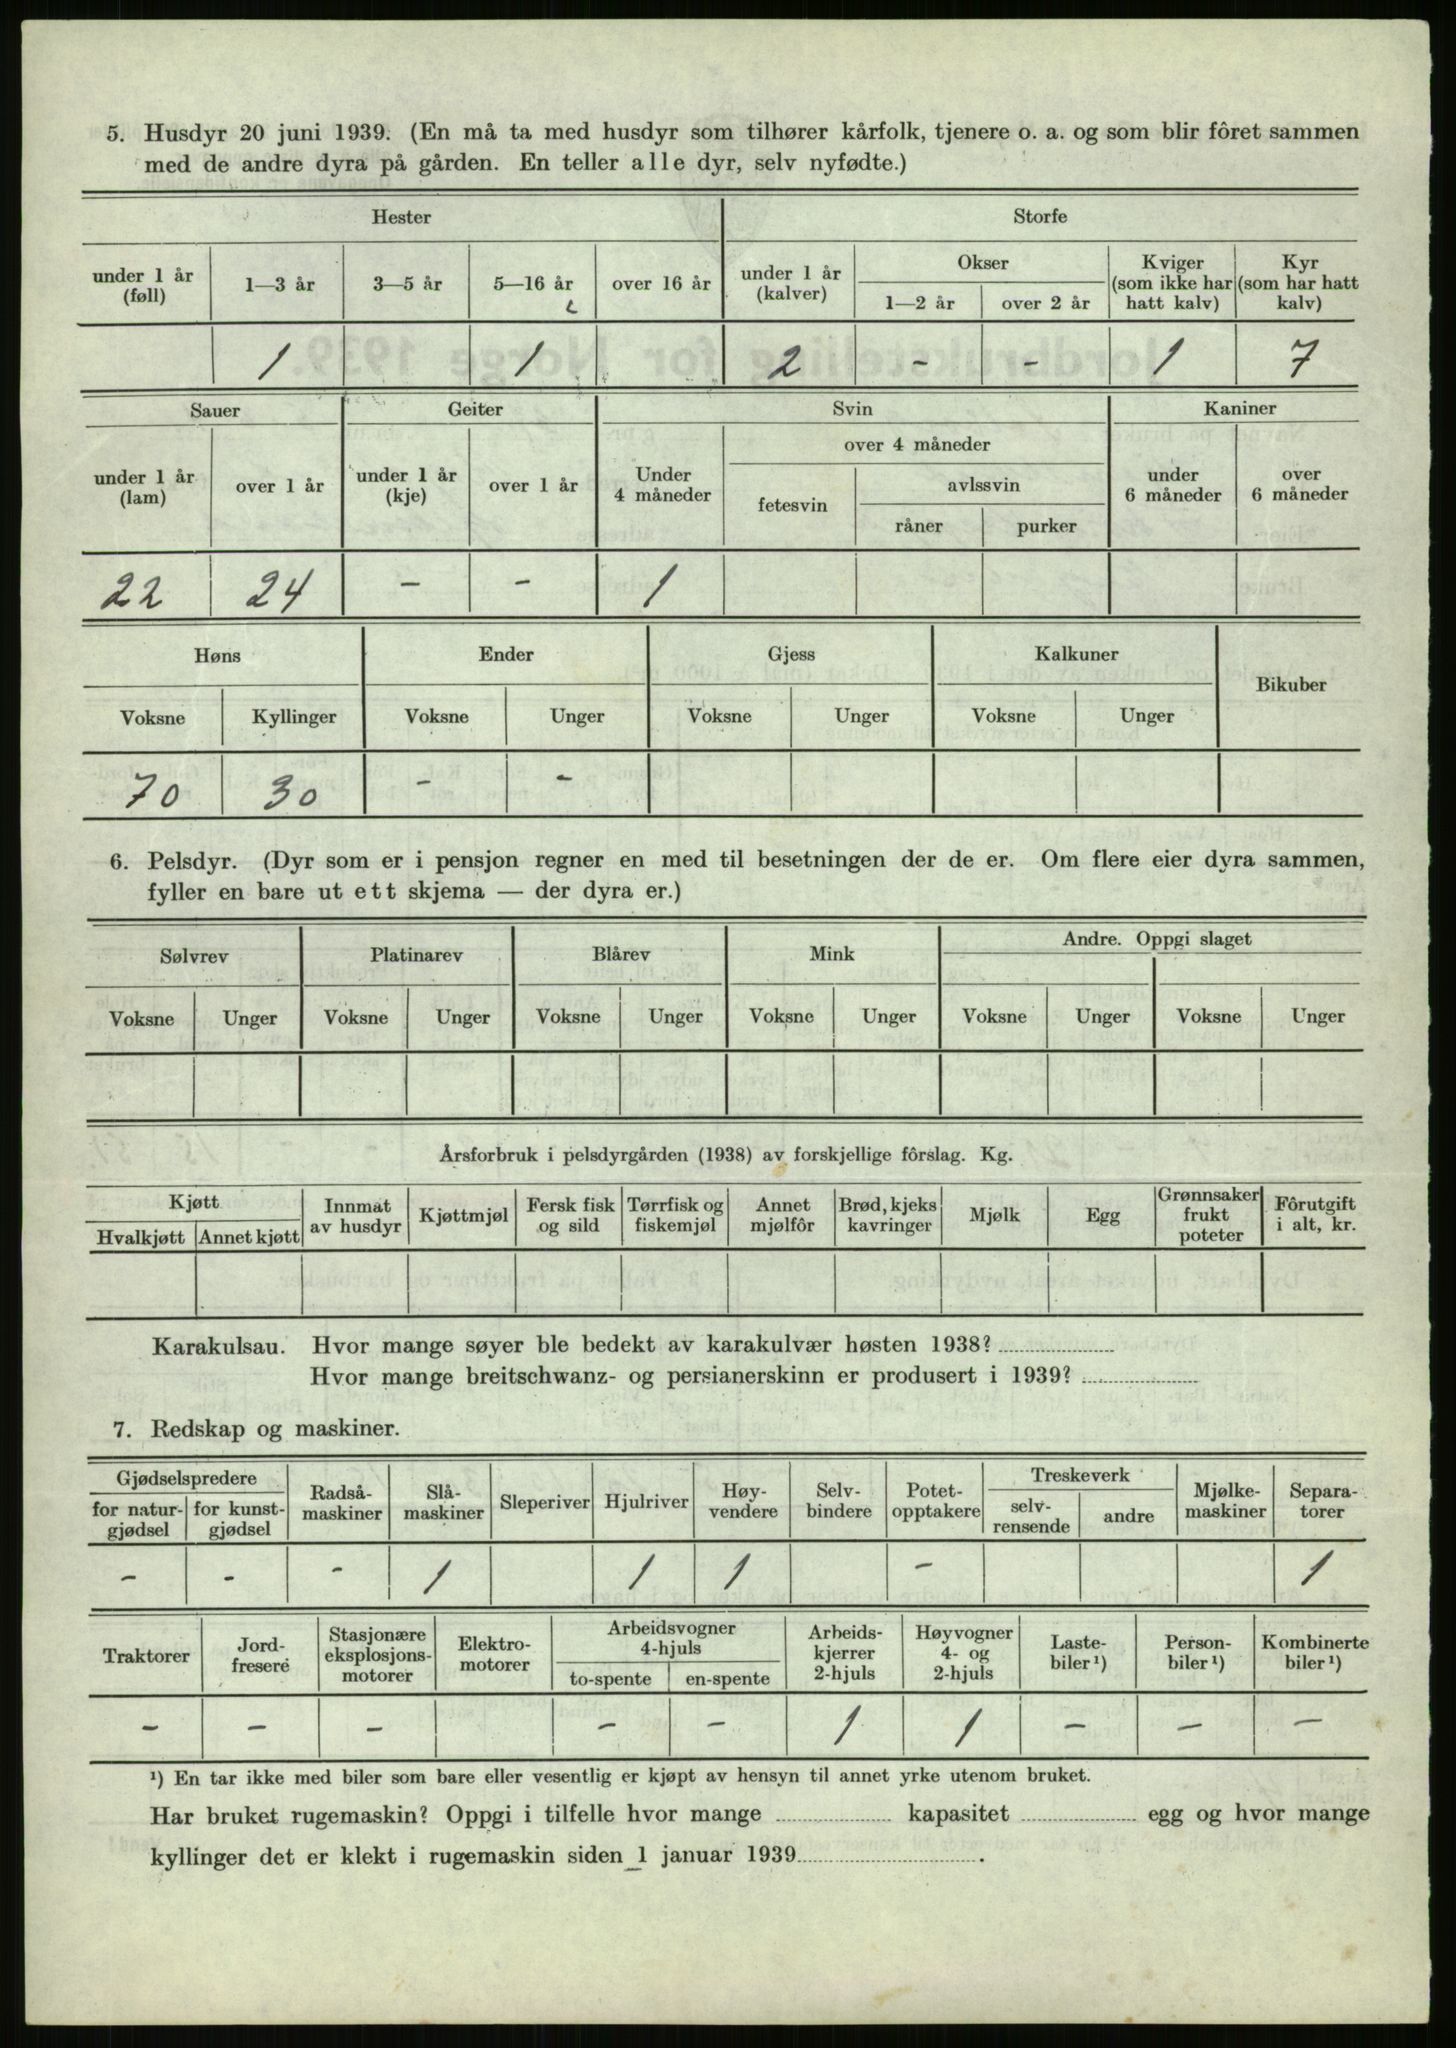 5. Husdyr 20 juni 1939. (En må ta med husdyr som tilhører kårfolk, tjenere o. a. og som blir fôret sammen
med de andre dyra på gården. En teller alle dyr, selv nyfødte.)
Hester Storfe
under 1 år (føll) 1—3 år 3—5 år 5—16 år over 16 år under 1 år (kalver) Okser 1—2 år over 2 år Kviger (som ikke har hatt kalv) Kyr (som har hatt kalv)
1 1 2 - - 1 7
Sauer Geiter Svin Kaniner
under 1 år (lam) over 1 år under 1 år (kje) over 1 år Under 4 måneder over 4 måneder fetesvin avlssvin råner purker under 6 måneder over 6 måneder
22 24 - - 1
Høns Ender Gjess Kalkuner Bikuber
Voksne Kyllinger Voksne Unger Voksne Unger Voksne Unger
70 30 - -
6. Pelsdyr. (Dyr som er i pensjon regner en med til besetningen der de er. Om flere eier dyra sammen,
fyller en bare ut ett skjema — der dyra er.)
Sølvrev Platinarev Blårev Mink Andre. Oppgi slaget
Voksne Unger Voksne Unger Voksne Unger Voksne Unger Voksne Unger Voksne Unger
Årsforbruk i pelsdyrgården (1938) av forskjellige fôrslag. Kg.
Kjøtt Hvalkjøtt Annet kjøtt Innmat av husdyr Kjøttmjøl Fersk fisk og sild Tørrfisk og fiskemjøl Annet mjølfôr Brød, kjeks kavringer Mjølk Egg Grønnsaker frukt poteter Fôrutgift i alt, kr.
Karakulsau. Hvor mange søyer ble bedekt av karakulvær høsten 1938?
Hvor mange breitschwanz- og persianerskinn er produsert i 1939?
7. Redskap og maskiner.
Gjødselspredere for natur-gjødsel for kunst-gjødsel Radså-maskiner Slå-maskiner Sleperiver Hjulriver Høy-vendere Selv-bindere Potet-opptakere Treskeverk selv-rensende andre Mjølke-maskiner Separa-torer
- - - 1 1 1 - 1
Traktorer Jord-fresere Stasjonære eksplosjons-motorer Elektro-motorer Arbeidsvogner 4-hjuls to-spente en-spente Arbeids-kjerrer 2-hjuls Høyvogner 4- og 2-hjuls Laste-biler ¹) Person-biler ¹) Kombinerte biler ¹)
- - - - - 1 1 - - -
¹) En tar ikke med biler som bare eller vesentlig er kjøpt av hensyn til annet yrke utenom bruket.
Har bruket rugemaskin? Oppgi i tilfelle hvor mange kapasitet egg og hvor mange
kyllinger det er klekt i rugemaskin siden 1 januar 1939 .